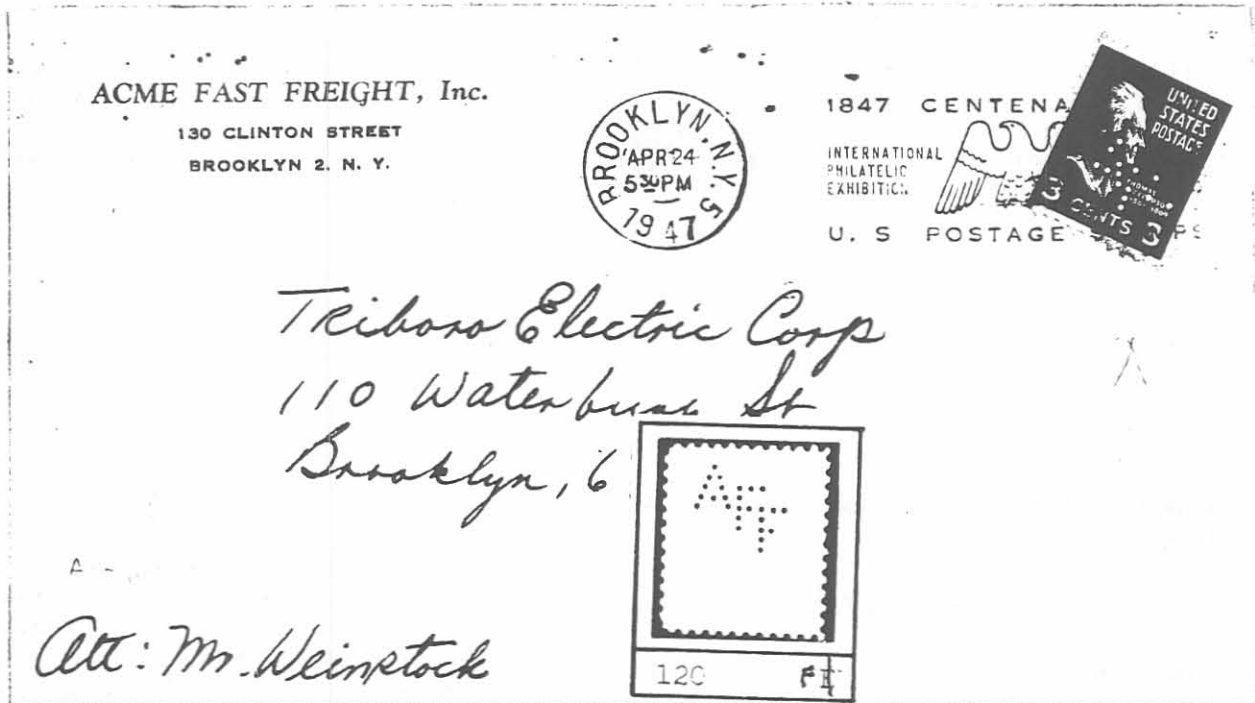 ACME FAST FREIGHT, Inc.
130 CLINTON STREET
BROOKLYN 2. N. Y.
BROOKLYN, N.Y. 5
APR 24
530PM
1947
1847 CENTENA
INTERNATIONAL
PHILATELIC
EXHIBITION
U. S POSTAGE PS
UNITED
STATES
POSTAGE
THOMAS
3 CENTS 3
Triboro Electric Corp
110 Waterbury St
Brooklyn, 6
AFF
120
Att: Mr. Weinstock